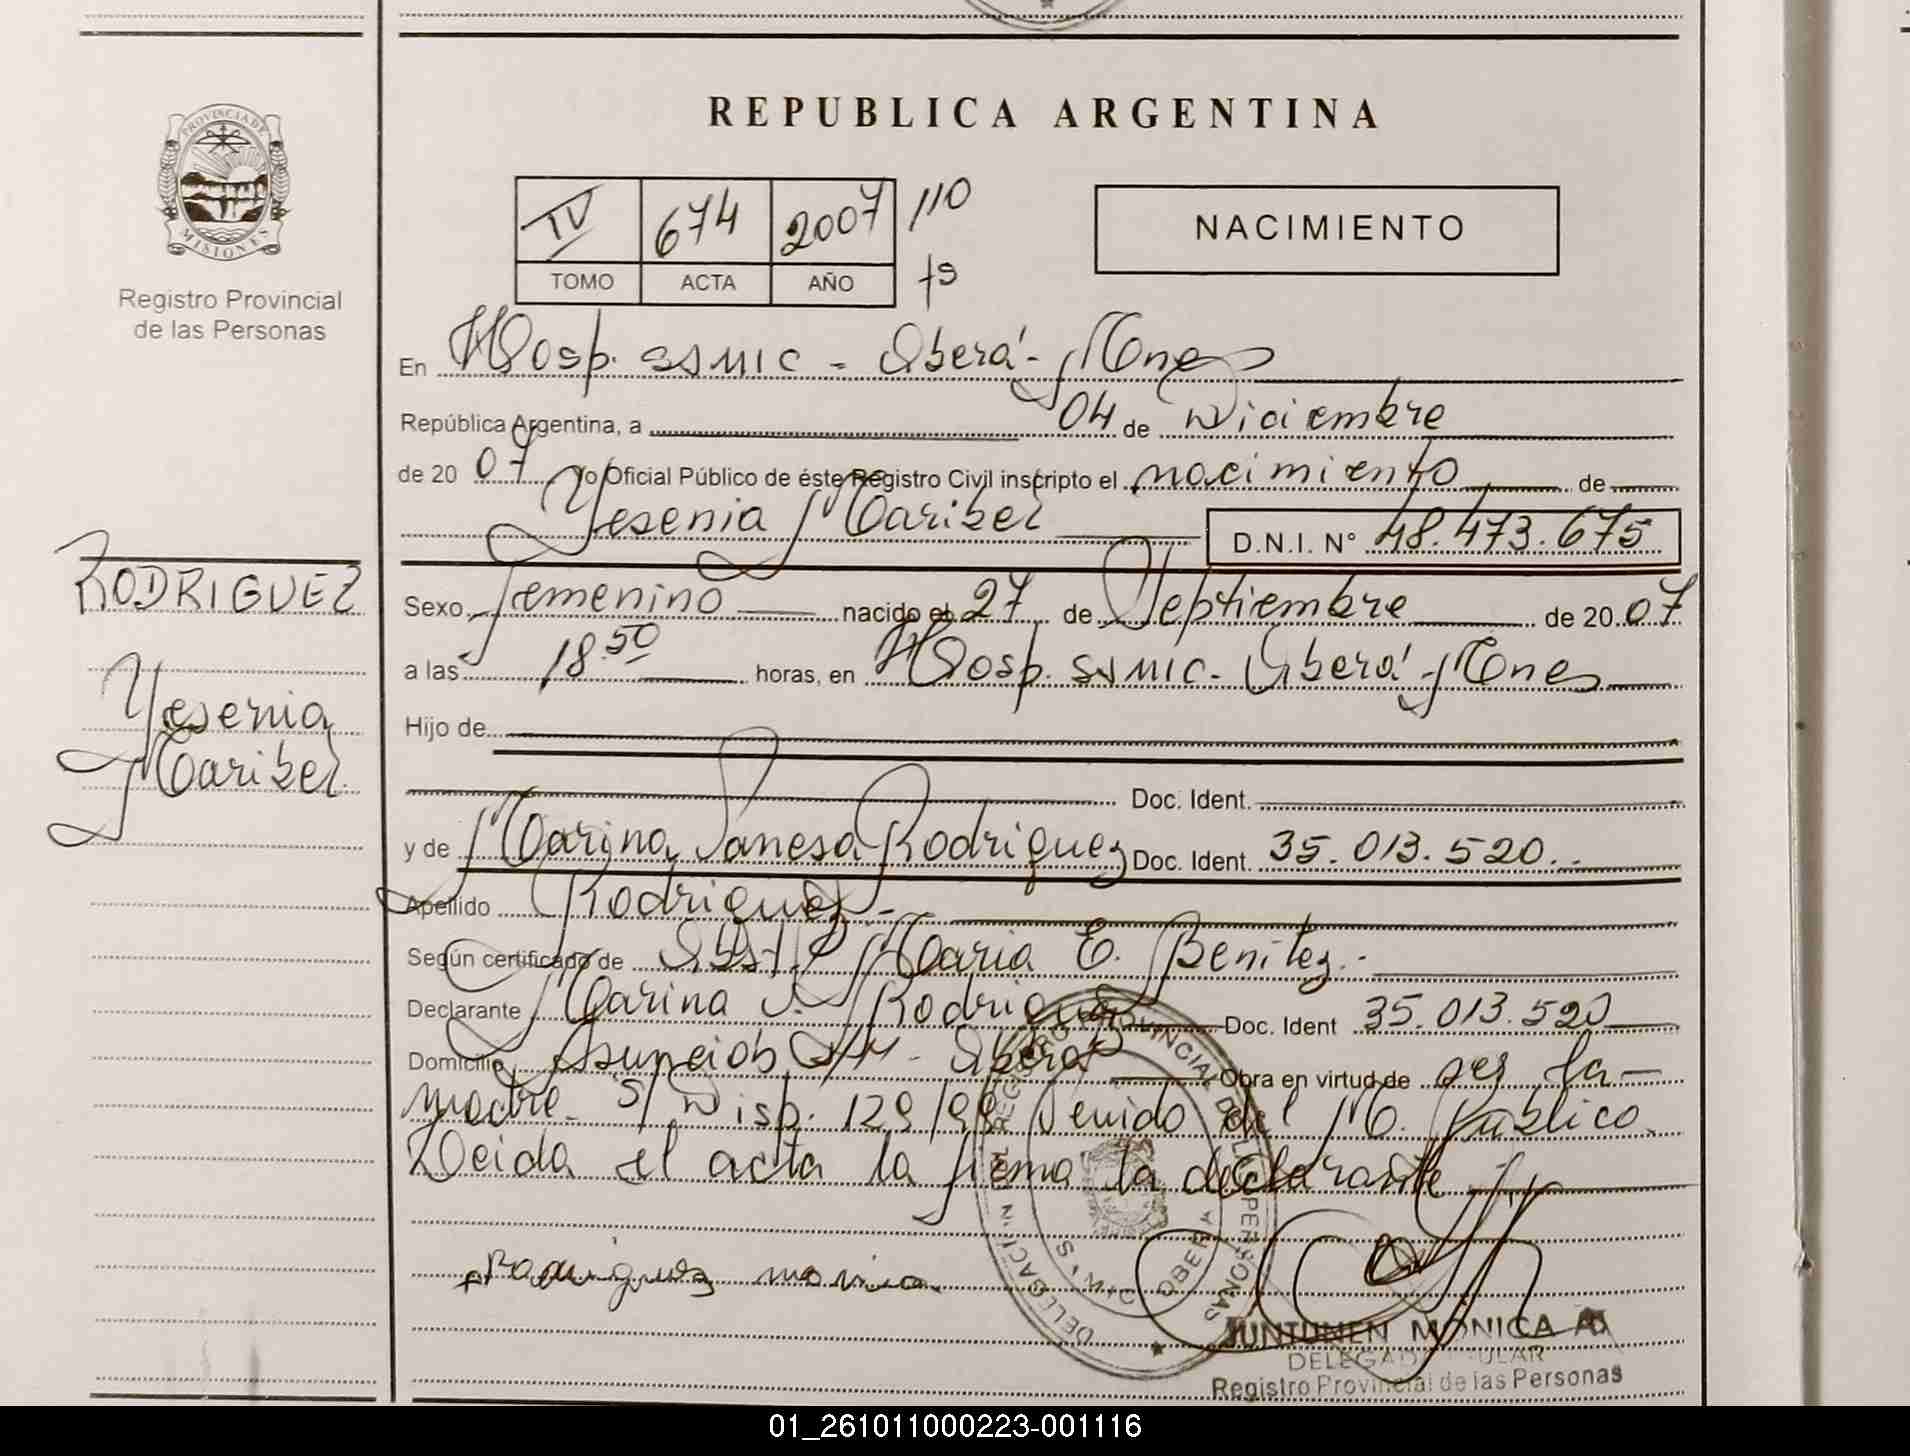 PROVINCIA DE
MISIONES
Registro Provincial
de las Personas
RODRIGUEZ
Yesenia
Maribel
REPUBLICA ARGENTINA
IV 674 2007 110
TOMO ACTA AÑO fs
NACIMIENTO
En Hosp. SSMIC - Oberá - Mnes
República Argentina, a 04 de Diciembre
de 20 07 yo Oficial Público de éste Registro Civil inscripto el nacimiento de
Yesenia Maribel D.N.I. N° 48.473.675
Sexo Femenino nacido el 27 de Septiembre de 20 07
a las 18.50 horas, en Hosp. SSMIC - Oberá - Mnes
Hijo de
Doc. Ident.
y de Marina Vanesa Rodriguez Doc. Ident. 35.013.520.-
Apellido Rodriguez.-
Según certificado de Obst. Maria E. Benitez.-
Declarante Marina V. Rodriguez Doc. Ident 35.013.520
Domicilio Asunción S/N - Oberá Obra en virtud de ser la
madre - S/ Disp. 129/99 venido del M. Publico.
Leida el acta la firma la declarante
Rodriguez marina.
REGISTRO PROVINCIAL DE LAS PERSONAS
DELEGACION
OBERA
JUNTUNEN MONICA A.
DELEGADA TITULAR
Registro Provincial de las Personas
01_261011000223-001116